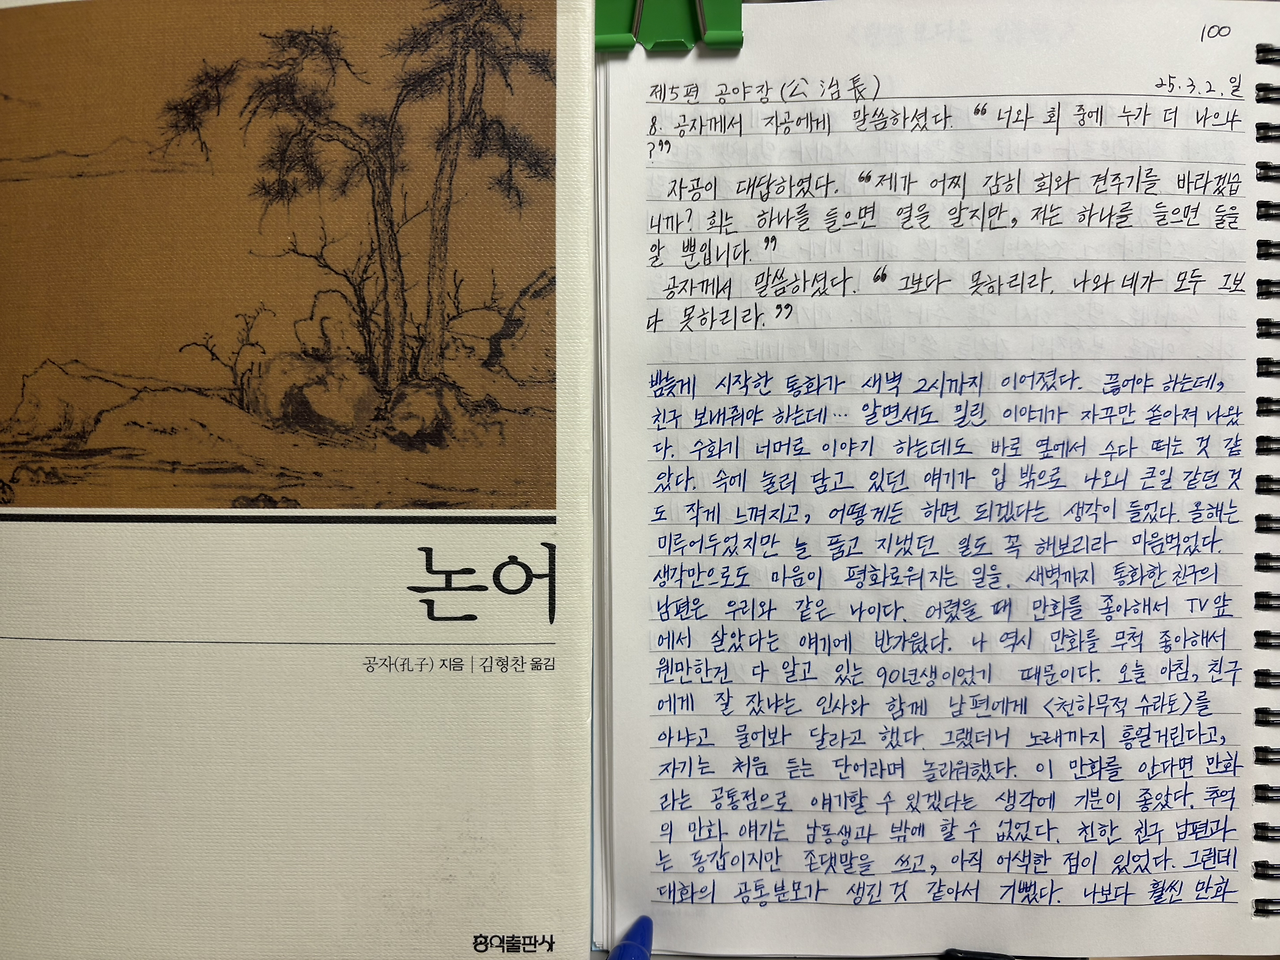 논어
공자(孔子) 지음 | 김형찬 옮김
홍익출판사
100
제5편 공야장(公冶長) 25.3.2.일
8. 공자께서 자공에게 말씀하셨다. “너와 회 중에 누가 더 나으냐
?”
자공이 대답하였다. “제가 어찌 감히 회와 견주기를 바라겠습
니까? 회는 하나를 들으면 열을 알지만, 저는 하나를 들으면 둘을
알 뿐입니다.”
공자께서 말씀하셨다. “그보다 못하리라. 나와 네가 모두 그보
다 못하리라.”
밤늦게 시작한 통화가 새벽 2시까지 이어졌다. 끊어야 하는데,
친구 보내줘야 하는데… 알면서도 밀린 이야기가 자꾸만 쏟아져 나왔
다. 수화기 너머로 이야기 하는데도 바로 옆에서 수다 떠는 것 같
았다. 속에 눌러 담고 있던 얘기가 입 밖으로 나오니 큰일 같던 것
도 작게 느껴지고, 어떻게든 하면 되겠다는 생각이 들었다. 올해는
미루어두었지만 늘 품고 지냈던 일도 꼭 해보리라 마음먹었다.
생각만으로도 마음이 평화로워지는 일을. 새벽까지 통화한 친구의
남편은 우리와 같은 나이다. 어렸을 때 만화를 좋아해서 TV앞
에서 살았다는 얘기에 반가웠다. 나 역시 만화를 무척 좋아해서
웬만한건 다 알고 있는 90년생이었기 때문이다. 오늘 아침, 친구
에게 잘 잤냐는 인사와 함께 남편에게 <천하무적 슈라토>를
아냐고 물어봐 달라고 했다. 그랬더니 노래까지 흥얼거린다고,
자기는 처음 듣는 단어라며 놀라워했다. 이 만화를 안다면 만화
라는 공통점으로 얘기할 수 있겠다는 생각에 기분이 좋았다. 추억
의 만화 얘기는 남동생과 밖에 할 수 없었다. 친한 친구 남편과
는 동갑이지만 존댓말을 쓰고, 아직 어색한 점이 있었다. 그런데
대화의 공통분모가 생긴 것 같아서 기뻤다. 나보다 훨씬 만화